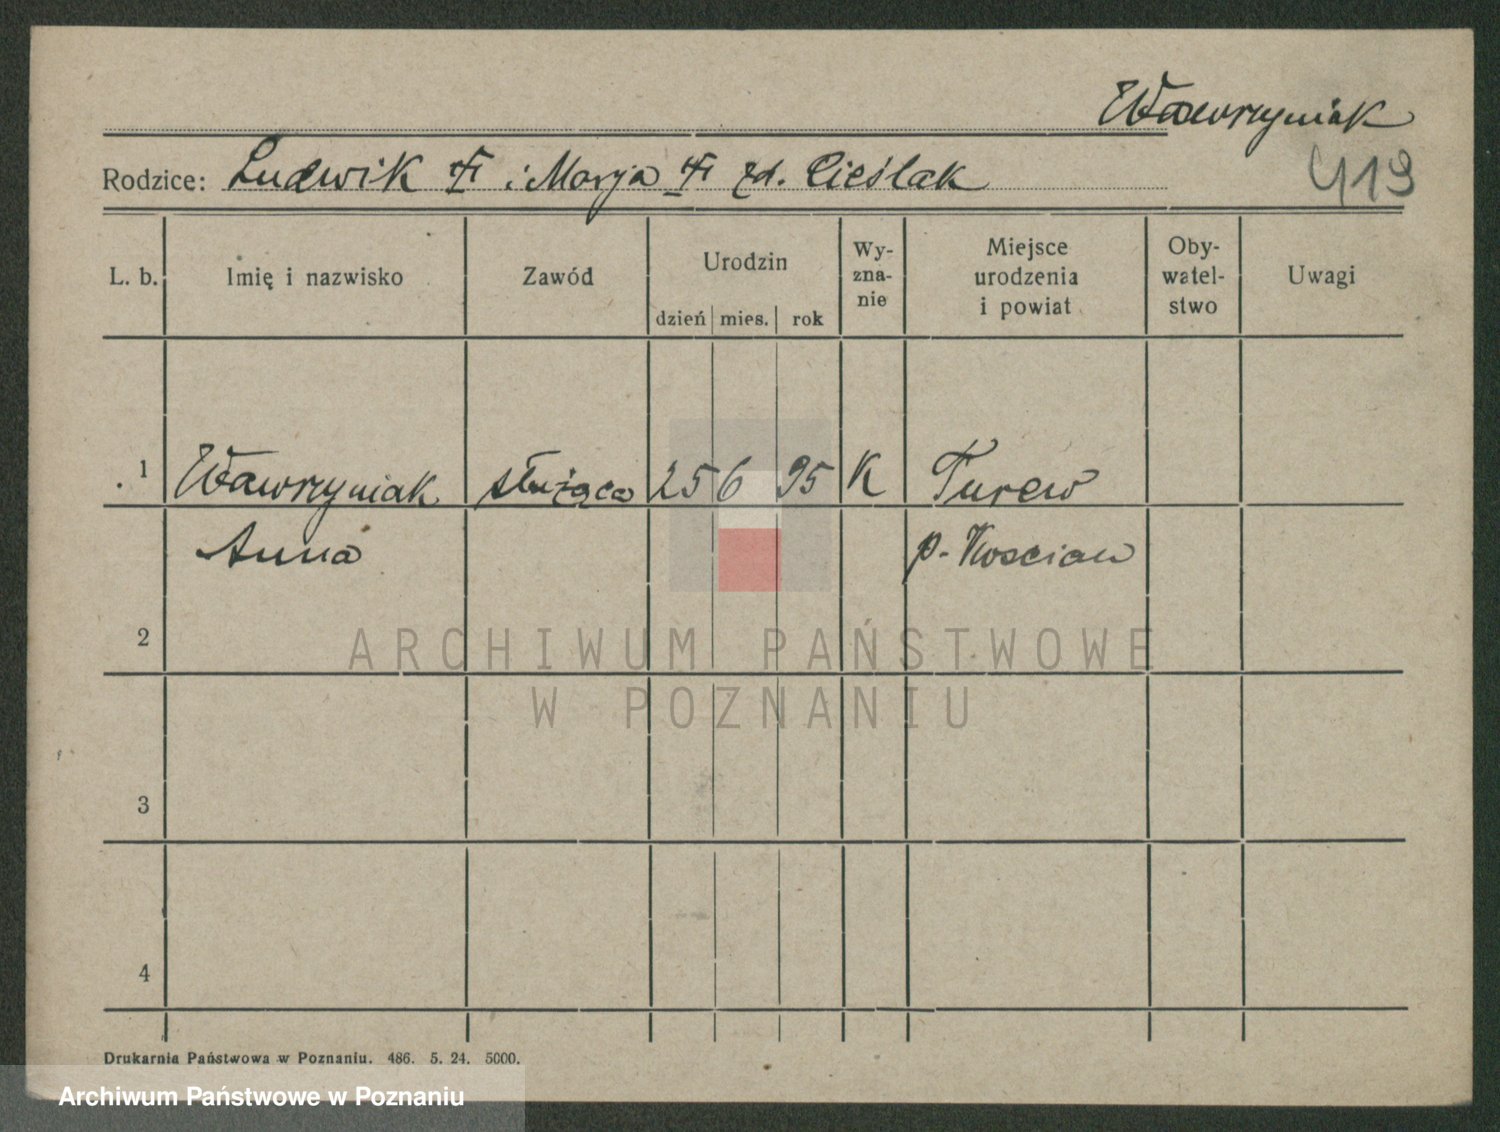 Wawrzyniak
Rodzice: Ludwik i Marja zd. Cieślak
419
L. b. Imię i nazwisko Zawód Urodzin dzień mies. rok Wy-zna-nie Miejsce urodzenia i powiat Oby-watel-stwo Uwagi
1 Wawrzyniak służąca 25 6 95 K Turew
Anna p. Koscian
2
ARCHIWUM PAŃSTWOWE
W POZNANIU
3
4
Drukarnia Państwowa w Poznaniu. 486. 5. 24. 5000.
Archiwum Państwowe w Poznaniu